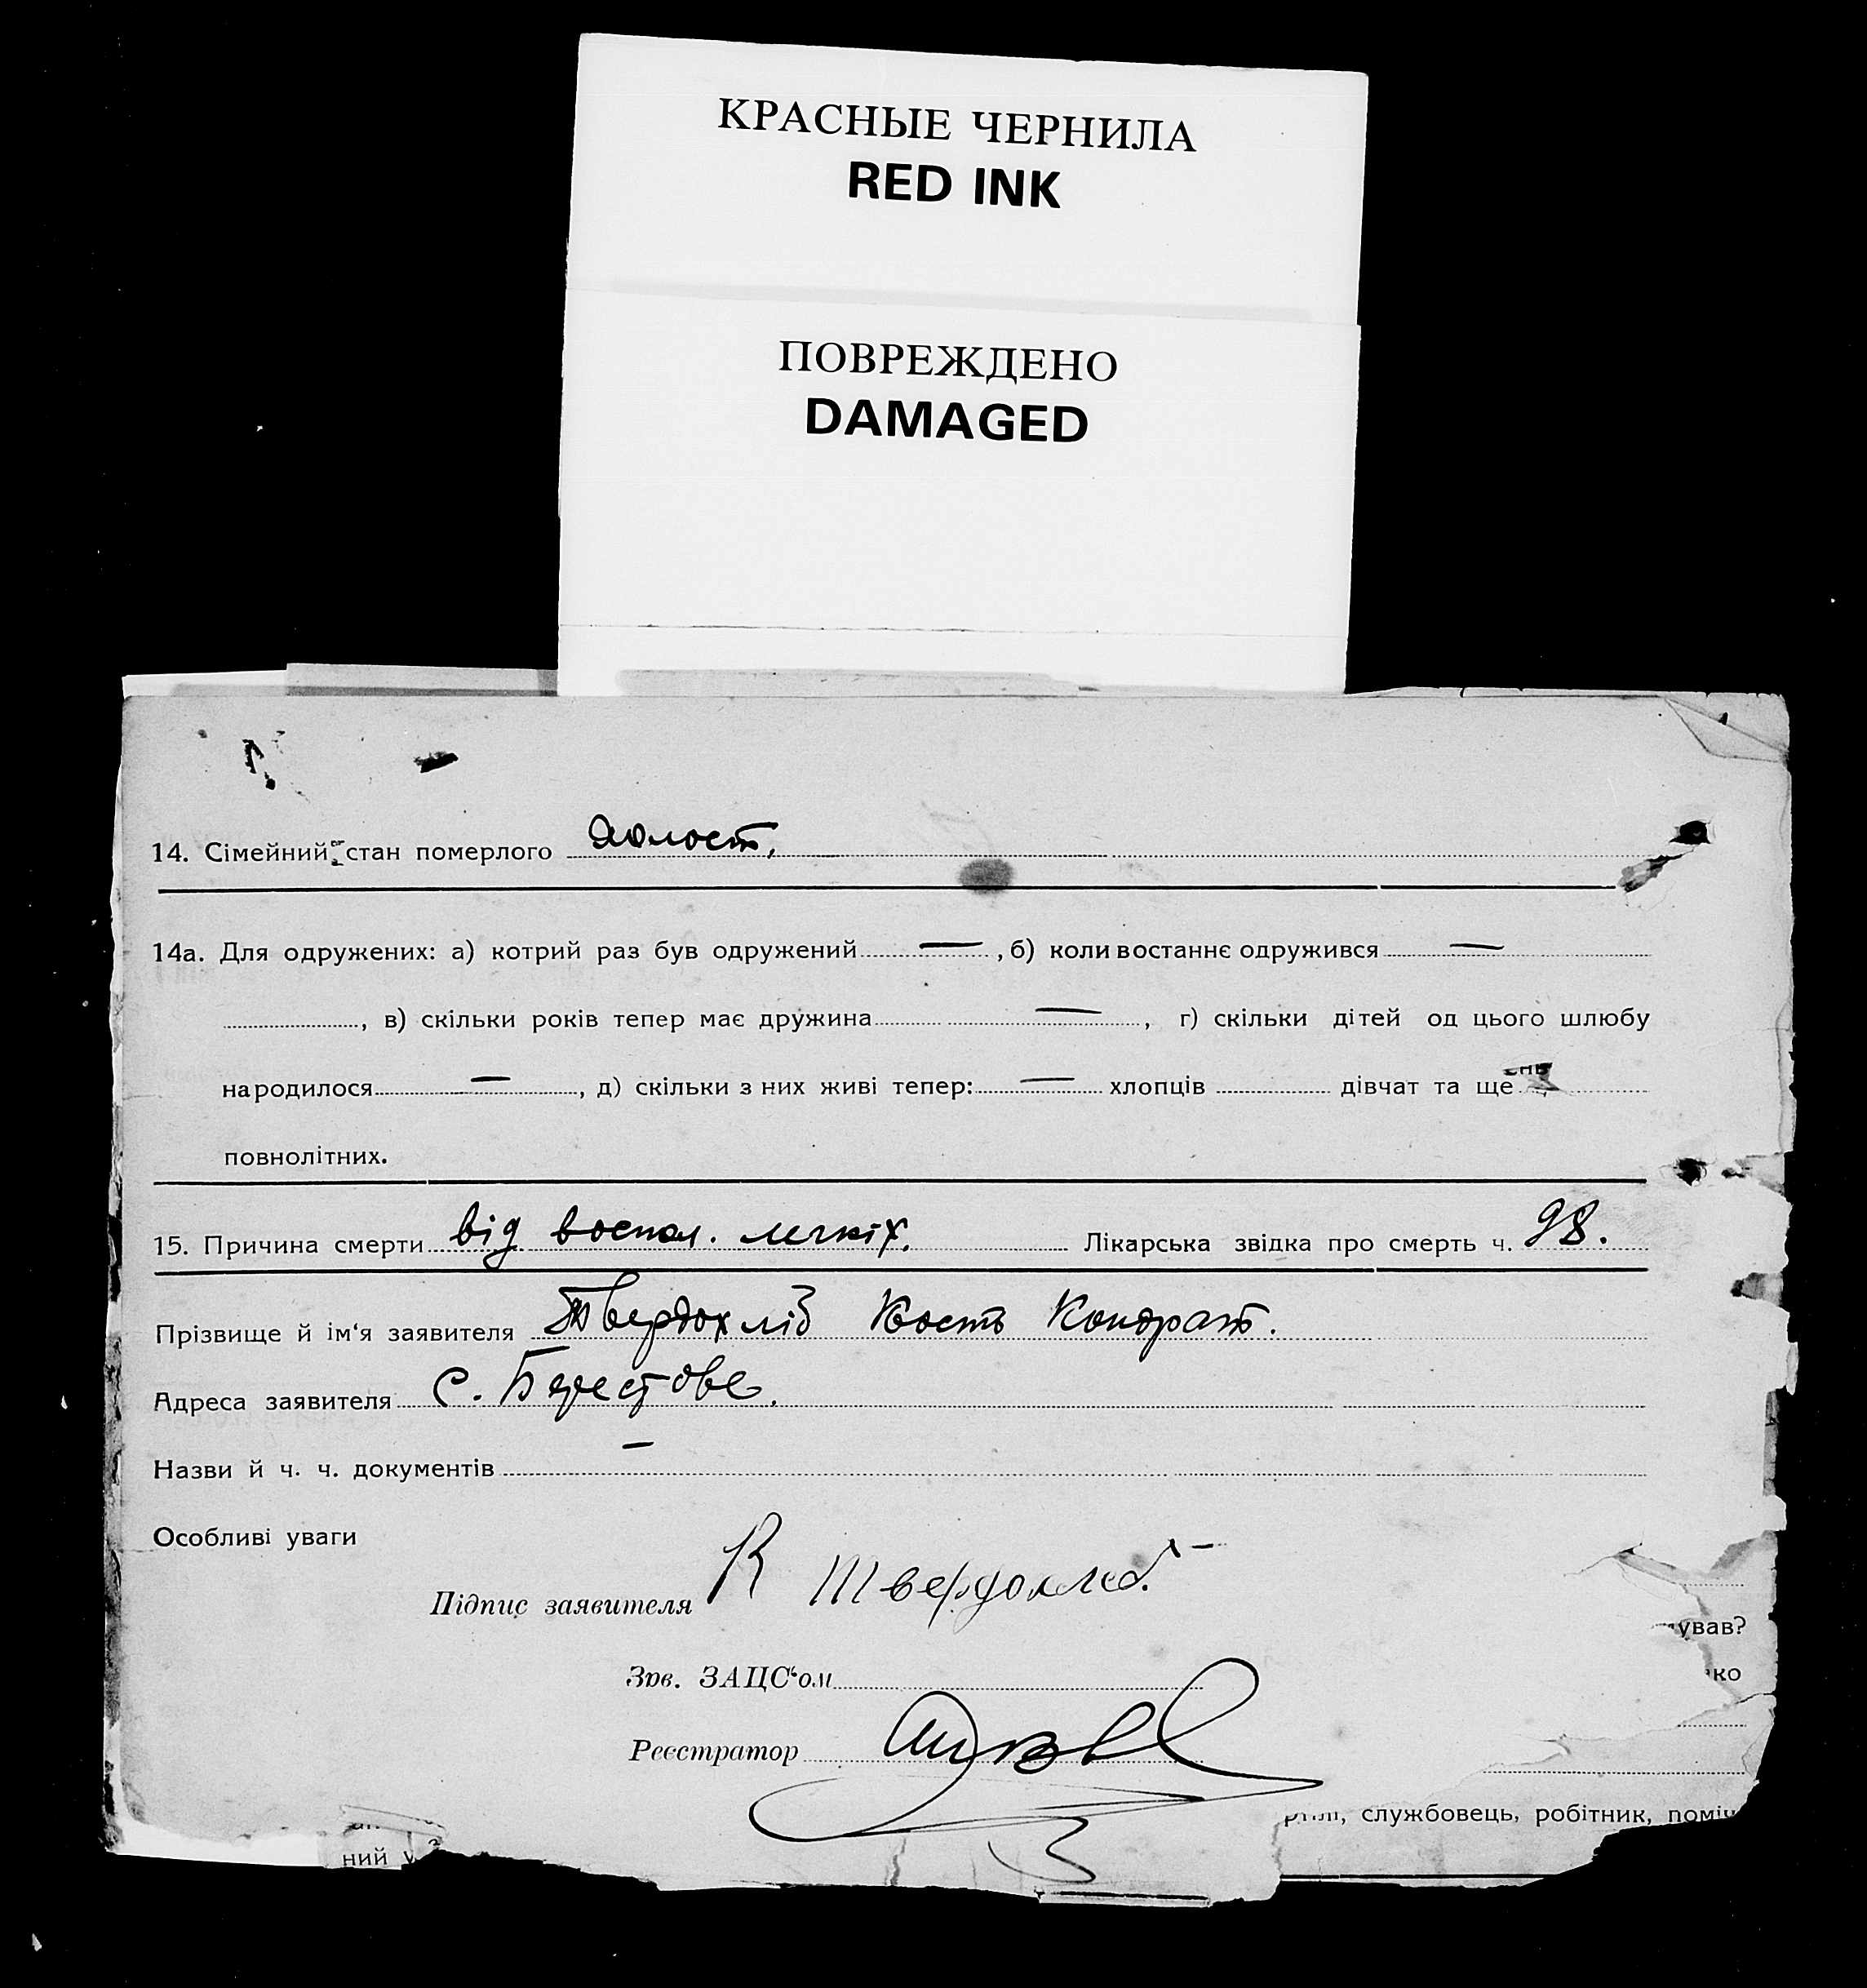 КРАСНЫЕ ЧЕРНИЛА
RED INK
ПОВРЕЖДЕНО
DAMAGED
14. Сімейний стан померлого холост.
14а. Для одружених: а) котрий раз був одружений — , б) коли востаннє одружився —
, в) скільки років тепер має дружина — , г) скільки дітей од цього шлюбу
народилося — , д) скільки з них живі тепер: — хлопців дівчат та ще
повнолітних.
15. Причина смерти від воспал. легкіх. Лікарська звідка про смерть ч. 98.
Прізвище й ім‘я заявителя Твердохліб Кость Кондрат.
Адреса заявителя с. Берестове.
Назви й ч. ч. документів —
Особливі уваги
Підпис заявителя К Твердохлеб
ував?
ко
Зав. ЗАЦС‘ом
Реєстратор
службовець, робітник, поміч
ний